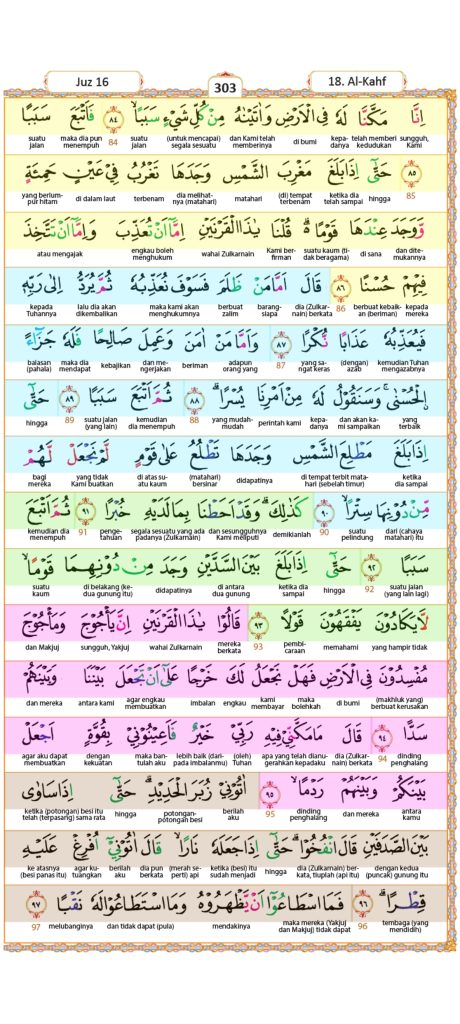 Juz 16 303 18. Al-Kahf
اِنَّا مَكَّنَّا لَهٗ فِى الْاَرْضِ وَاٰتَيْنٰهُ مِنْ كُلِّ شَيْءٍ سَبَبًا ۙ ﴿٨٤﴾ فَاَتْبَعَ سَبَبًا
sungguh, Kami telah memberi kedudukan kepadanya di bumi dan Kami telah memberinya (untuk mencapai) segala sesuatu suatu jalan 84 maka dia pun menempuh suatu jalan
﴿٨٥﴾ حَتّٰىٓ اِذَا بَلَغَ مَغْرِبَ الشَّمْسِ وَجَدَهَا تَغْرُبُ فِيْ عَيْنٍ حَمِئَةٍ
85 hingga ketika dia telah sampai (di) tempat terbenam matahari dia melihatnya (matahari) terbenam di dalam laut yang berlumpur hitam
وَّوَجَدَ عِنْدَهَا قَوْمًا ەۗ قُلْنَا يٰذَا الْقَرْنَيْنِ اِمَّآ اَنْ تُعَذِّبَ وَاِمَّآ اَنْ تَتَّخِذَ
dan ditemukannya di sana suatu kaum (tidak beragama) Kami berfirman wahai Zulkarnain engkau boleh menghukum atau mengajak
فِيْهِمْ حُسْنًا ﴿٨٦﴾ قَالَ اَمَّا مَنْ ظَلَمَ فَسَوْفَ نُعَذِّبُهٗ ثُمَّ يُرَدُّ اِلٰى رَبِّهٖ
kepada mereka berbuat kebaikan (beriman) 86 dia (Zulkarnain) berkata barangsiapa berbuat zalim maka kami akan menghukumnya lalu dia akan dikembalikan kepada Tuhannya
فَيُعَذِّبُهٗ عَذَابًا نُّكْرًا ﴿٨٧﴾ وَاَمَّا مَنْ اٰمَنَ وَعَمِلَ صَالِحًا فَلَهٗ جَزَاۤءً
kemudian Tuhan mengazabnya (dengan) azab yang sangat keras 87 adapun orang yang beriman dan mengerjakan kebajikan maka dia mendapat balasan (pahala)
ۨالْحُسْنٰىۚ وَسَنَقُوْلُ لَهٗ مِنْ اَمْرِنَا يُسْرًا ۗ ﴿٨٨﴾ ثُمَّ اَتْبَعَ سَبَبًا ﴿٨٩﴾ حَتّٰىٓ
yang terbaik dan akan kami sampaikan kepadanya perintah kami yang mudah-mudah 88 kemudian dia menempuh suatu jalan (yang lain) 89 hingga
اِذَا بَلَغَ مَطْلِعَ الشَّمْسِ وَجَدَهَا تَطْلُعُ عَلٰى قَوْمٍ لَّمْ نَجْعَلْ لَّهُمْ
ketika dia sampai di tempat terbit matahari (sebelah timur) didapatinya (matahari) bersinar di atas suatu kaum yang tidak Kami buatkan bagi mereka
مِّنْ دُوْنِهَا سِتْرًا ۙ ﴿٩٠﴾ كَذٰلِكَۗ وَقَدْ اَحَطْنَا بِمَا لَدَيْهِ خُبْرًا ﴿٩١﴾ ثُمَّ اَتْبَعَ
dari (cahaya matahari) itu suatu pelindung 90 demikianlah dan sesungguhnya Kami meliputi segala sesuatu yang ada padanya (Zulkarnain) pengetahuan 91 kemudian dia menempuh
سَبَبًا ﴿٩٢﴾ حَتّٰىٓ اِذَا بَلَغَ بَيْنَ السَّدَّيْنِ وَجَدَ مِنْ دُوْنِهِمَا قَوْمًا ۙ
suatu jalan (yang lain lagi) 92 hingga ketika dia sampai di antara dua gunung didapatinya di belakang (kedua gunung itu) suatu kaum
لَّا يَكَادُوْنَ يَفْقَهُوْنَ قَوْلًا ﴿٩٣﴾ قَالُوْا يٰذَا الْقَرْنَيْنِ اِنَّ يَأْجُوْجَ وَمَأْجُوْجَ
yang hampir tidak memahami pembicaraan 93 mereka berkata wahai Zulkarnain sungguh, Yakjuj dan Makjuj
مُفْسِدُوْنَ فِى الْاَرْضِ فَهَلْ نَجْعَلُ لَكَ خَرْجًا عَلٰٓى اَنْ تَجْعَلَ بَيْنَنَا وَبَيْنَهُمْ
(makhluk yang) berbuat kerusakan di bumi maka bolehkah kami membayar engkau imbalan agar engkau membuatkan antara kami dan mereka
سَدًّا ﴿٩٤﴾ قَالَ مَا مَكَّنِّيْ فِيْهِ رَبِّيْ خَيْرٌ فَاَعِيْنُوْنِيْ بِقُوَّةٍ اَجْعَلْ
dinding penghalang 94 dia (Zulkarnain) berkata apa yang telah dianugerahkan kepadaku (oleh) Tuhan lebih baik (daripada imbalanmu) maka bantulah aku dengan kekuatan agar aku dapat membuatkan
بَيْنَكُمْ وَبَيْنَهُمْ رَدْمًا ۙ ﴿٩٥﴾ اٰتُوْنِيْ زُبَرَ الْحَدِيْدِۗ حَتّٰىٓ اِذَا سَاوٰى
antara kamu dan mereka dinding penghalang 95 berilah aku potongan-potongan besi hingga ketika (potongan) besi itu telah (terpasang) sama rata
بَيْنَ الصَّدَفَيْنِ قَالَ انْفُخُوْاۗ حَتّٰىٓ اِذَا جَعَلَهٗ نَارًاۙ قَالَ اٰتُوْنِيْٓ اُفْرِغْ عَلَيْهِ
dengan kedua (puncak) gunung itu dia (Zulkarnain) berkata, tiuplah (api itu) hingga ketika (besi) itu sudah menjadi (merah seperti) api dia pun berkata berilah aku agar kutuangkan ke atasnya (besi panas itu)
قِطْرًا ۗ ﴿٩٦﴾ فَمَا اسْطَاعُوْٓا اَنْ يَّظْهَرُوْهُ وَمَا اسْتَطَاعُوْا لَهٗ نَقْبًا ﴿٩٧﴾
tembaga (yang mendidih) 96 maka mereka (Yakjuj dan Makjuj) tidak dapat mendakinya dan tidak dapat (pula) melubanginya 97